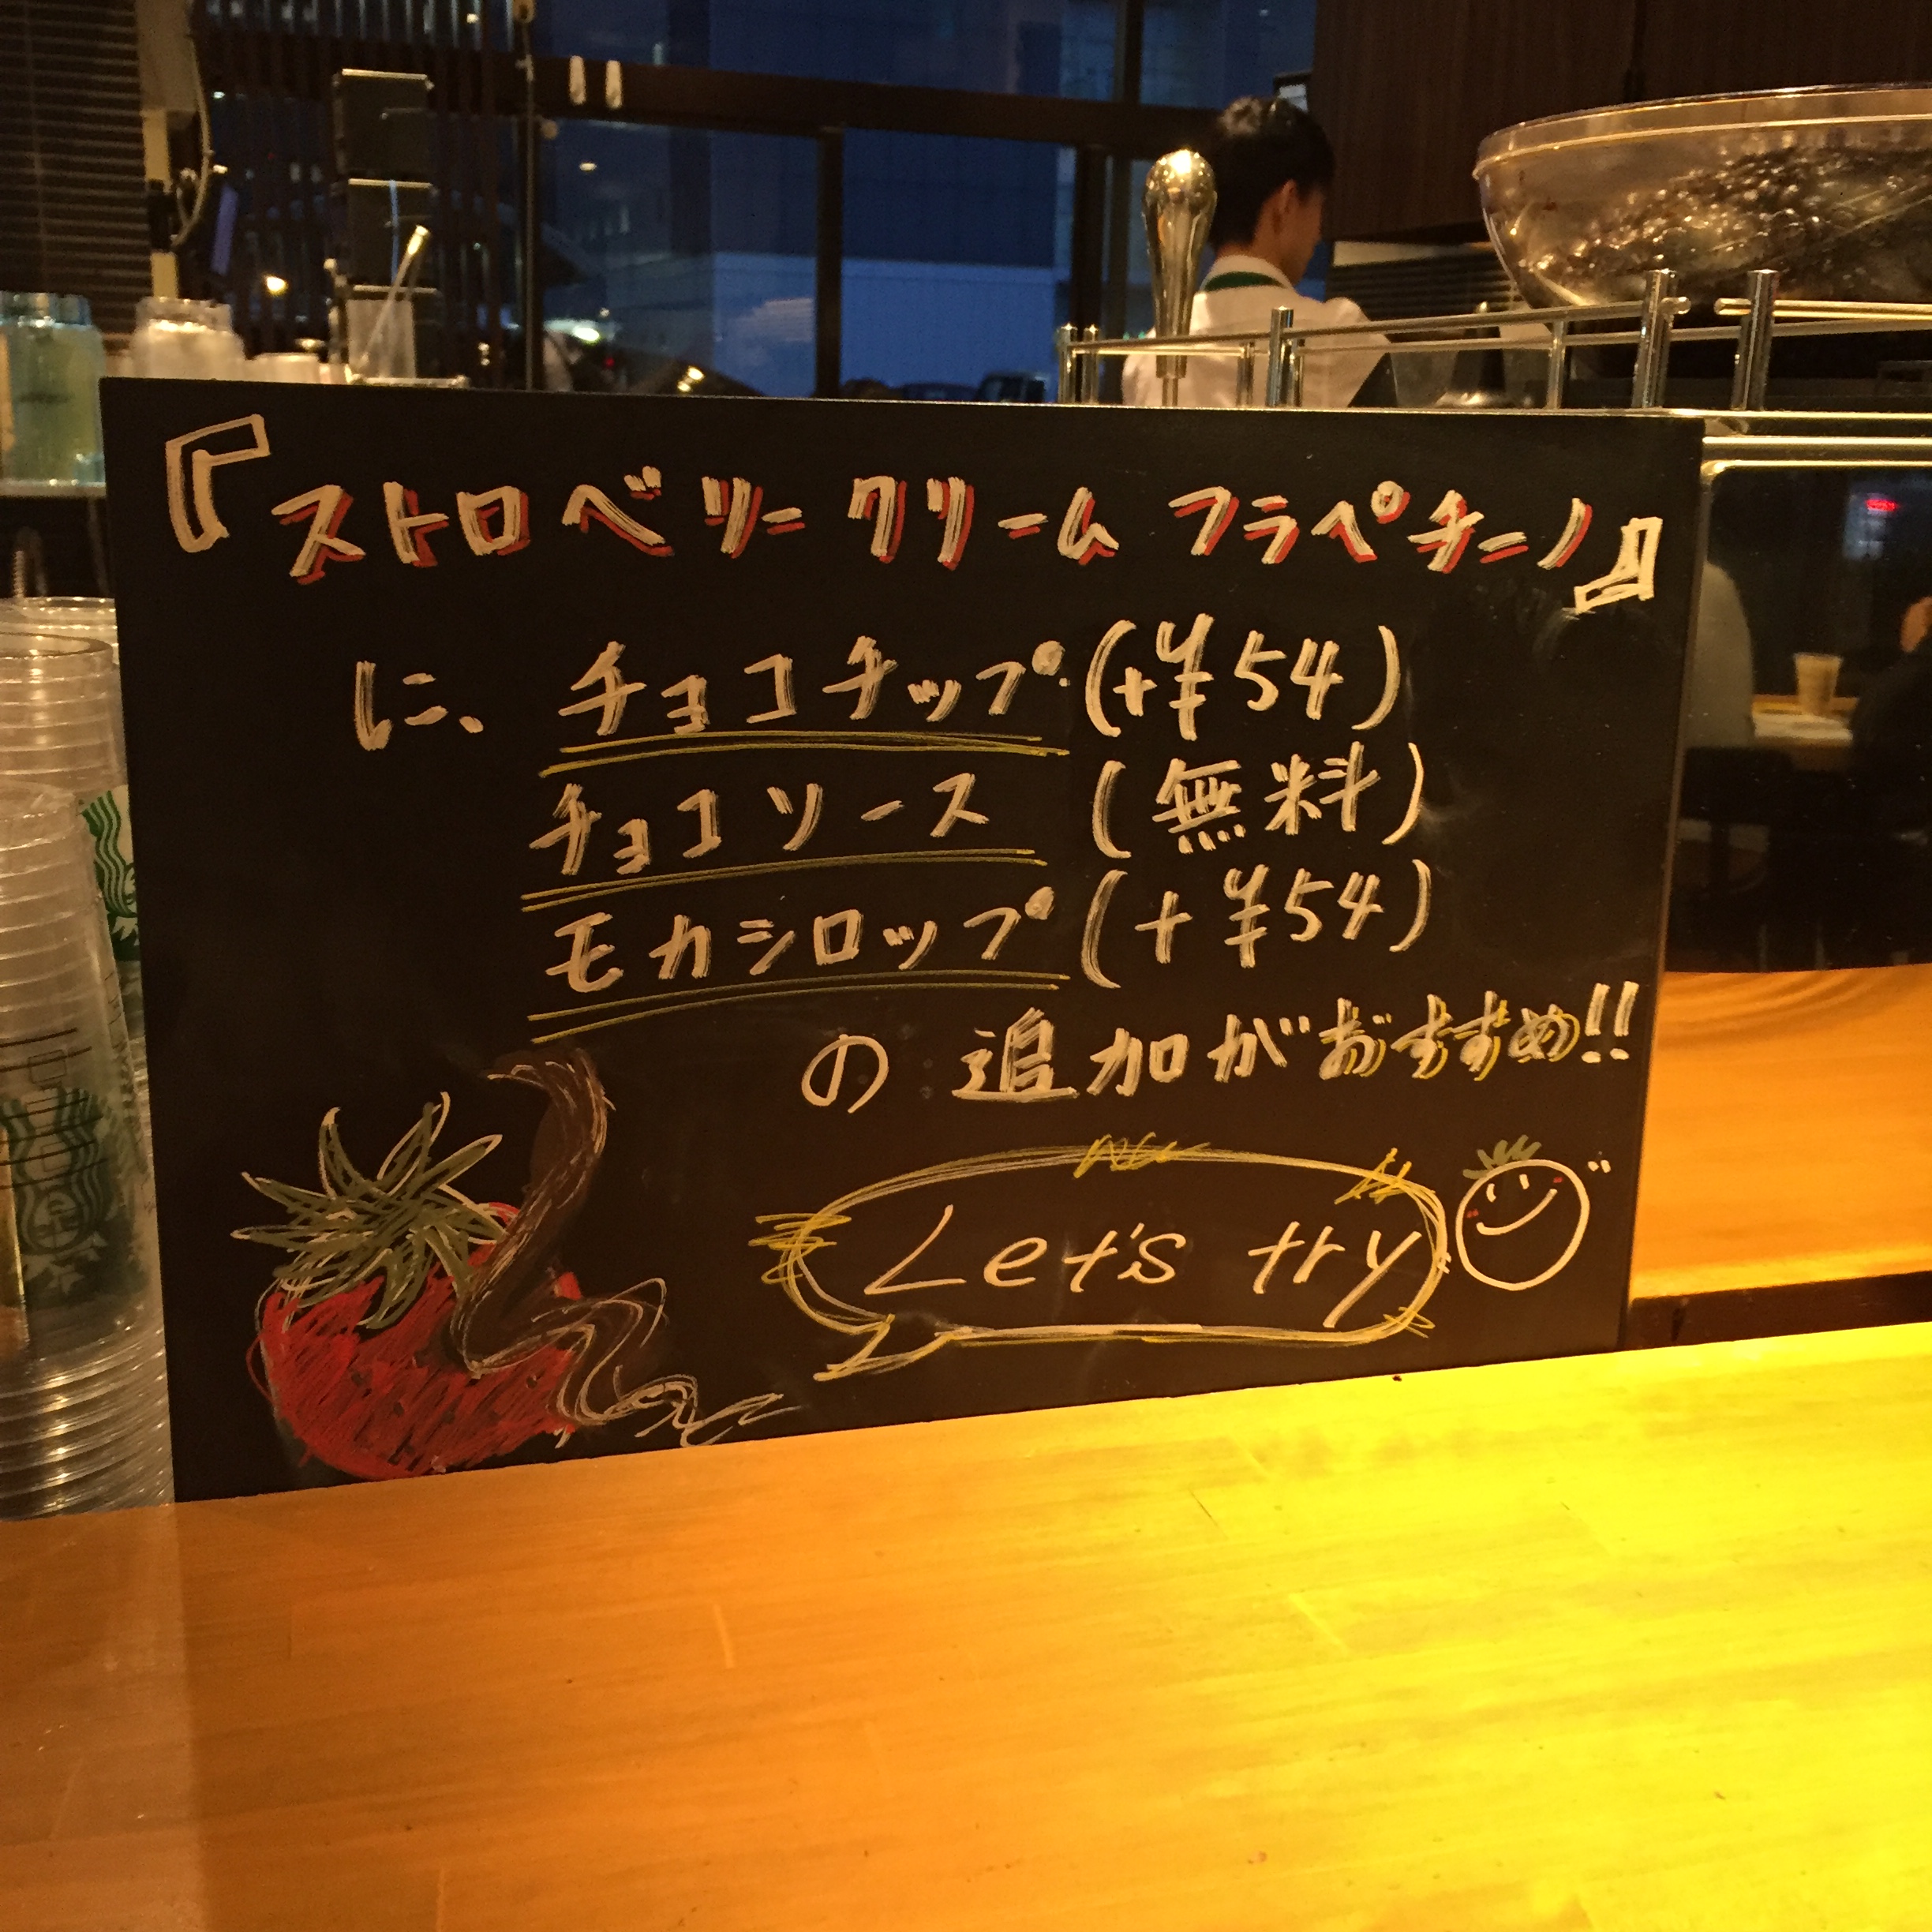 『ストロベリー クリーム フラペチーノ』
に、チョコチップ(+¥54)
チョコソース (無料)
モカシロップ(+¥54)
の 追加がおすすめ!!
Let's try